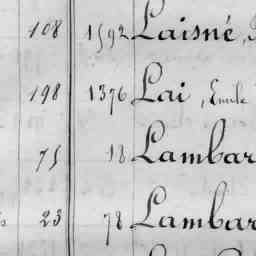 108 1592 Laisné,
198 1376 Lai, Emile
75 18 Lambar
23 78 Lambar